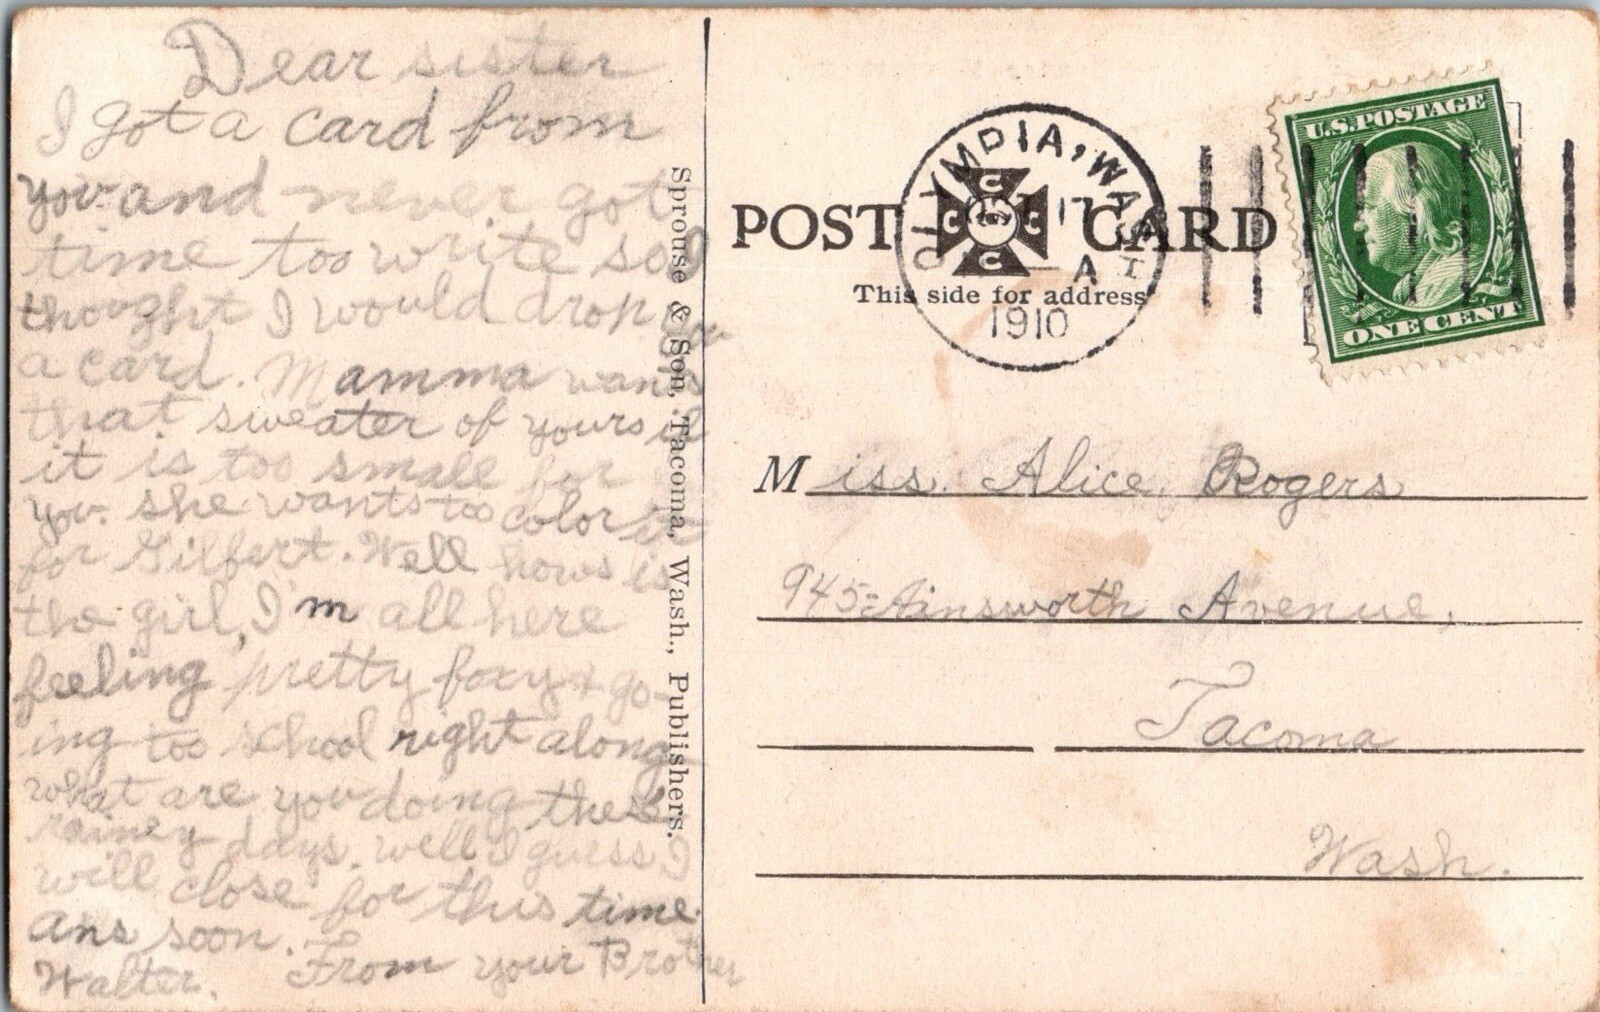 Dear sister
I got a card from
you and never got
time too write so I
thought I would drop you
a card. Mamma wants
that sweater of yours if
it is too small for
you. she wants too color it
for Gilbert. Well hows is
the girl, I'm all here
feeling pretty foxy + go-
ing too school right along
what are you doing these
rainey days. well I guess I
will close for this time.
Ans soon. From your Brother
Walter.
Sprouse & Son, Tacoma, Wash., Publishers.
POST CARD
C C C C
This side for address
OLYMPIA, WASH
17
A
1910
U.S. POSTAGE
ONE CENT
Miss. Alice, Rogers
945=Ainsworth Avenue,
Tacoma
Wash.